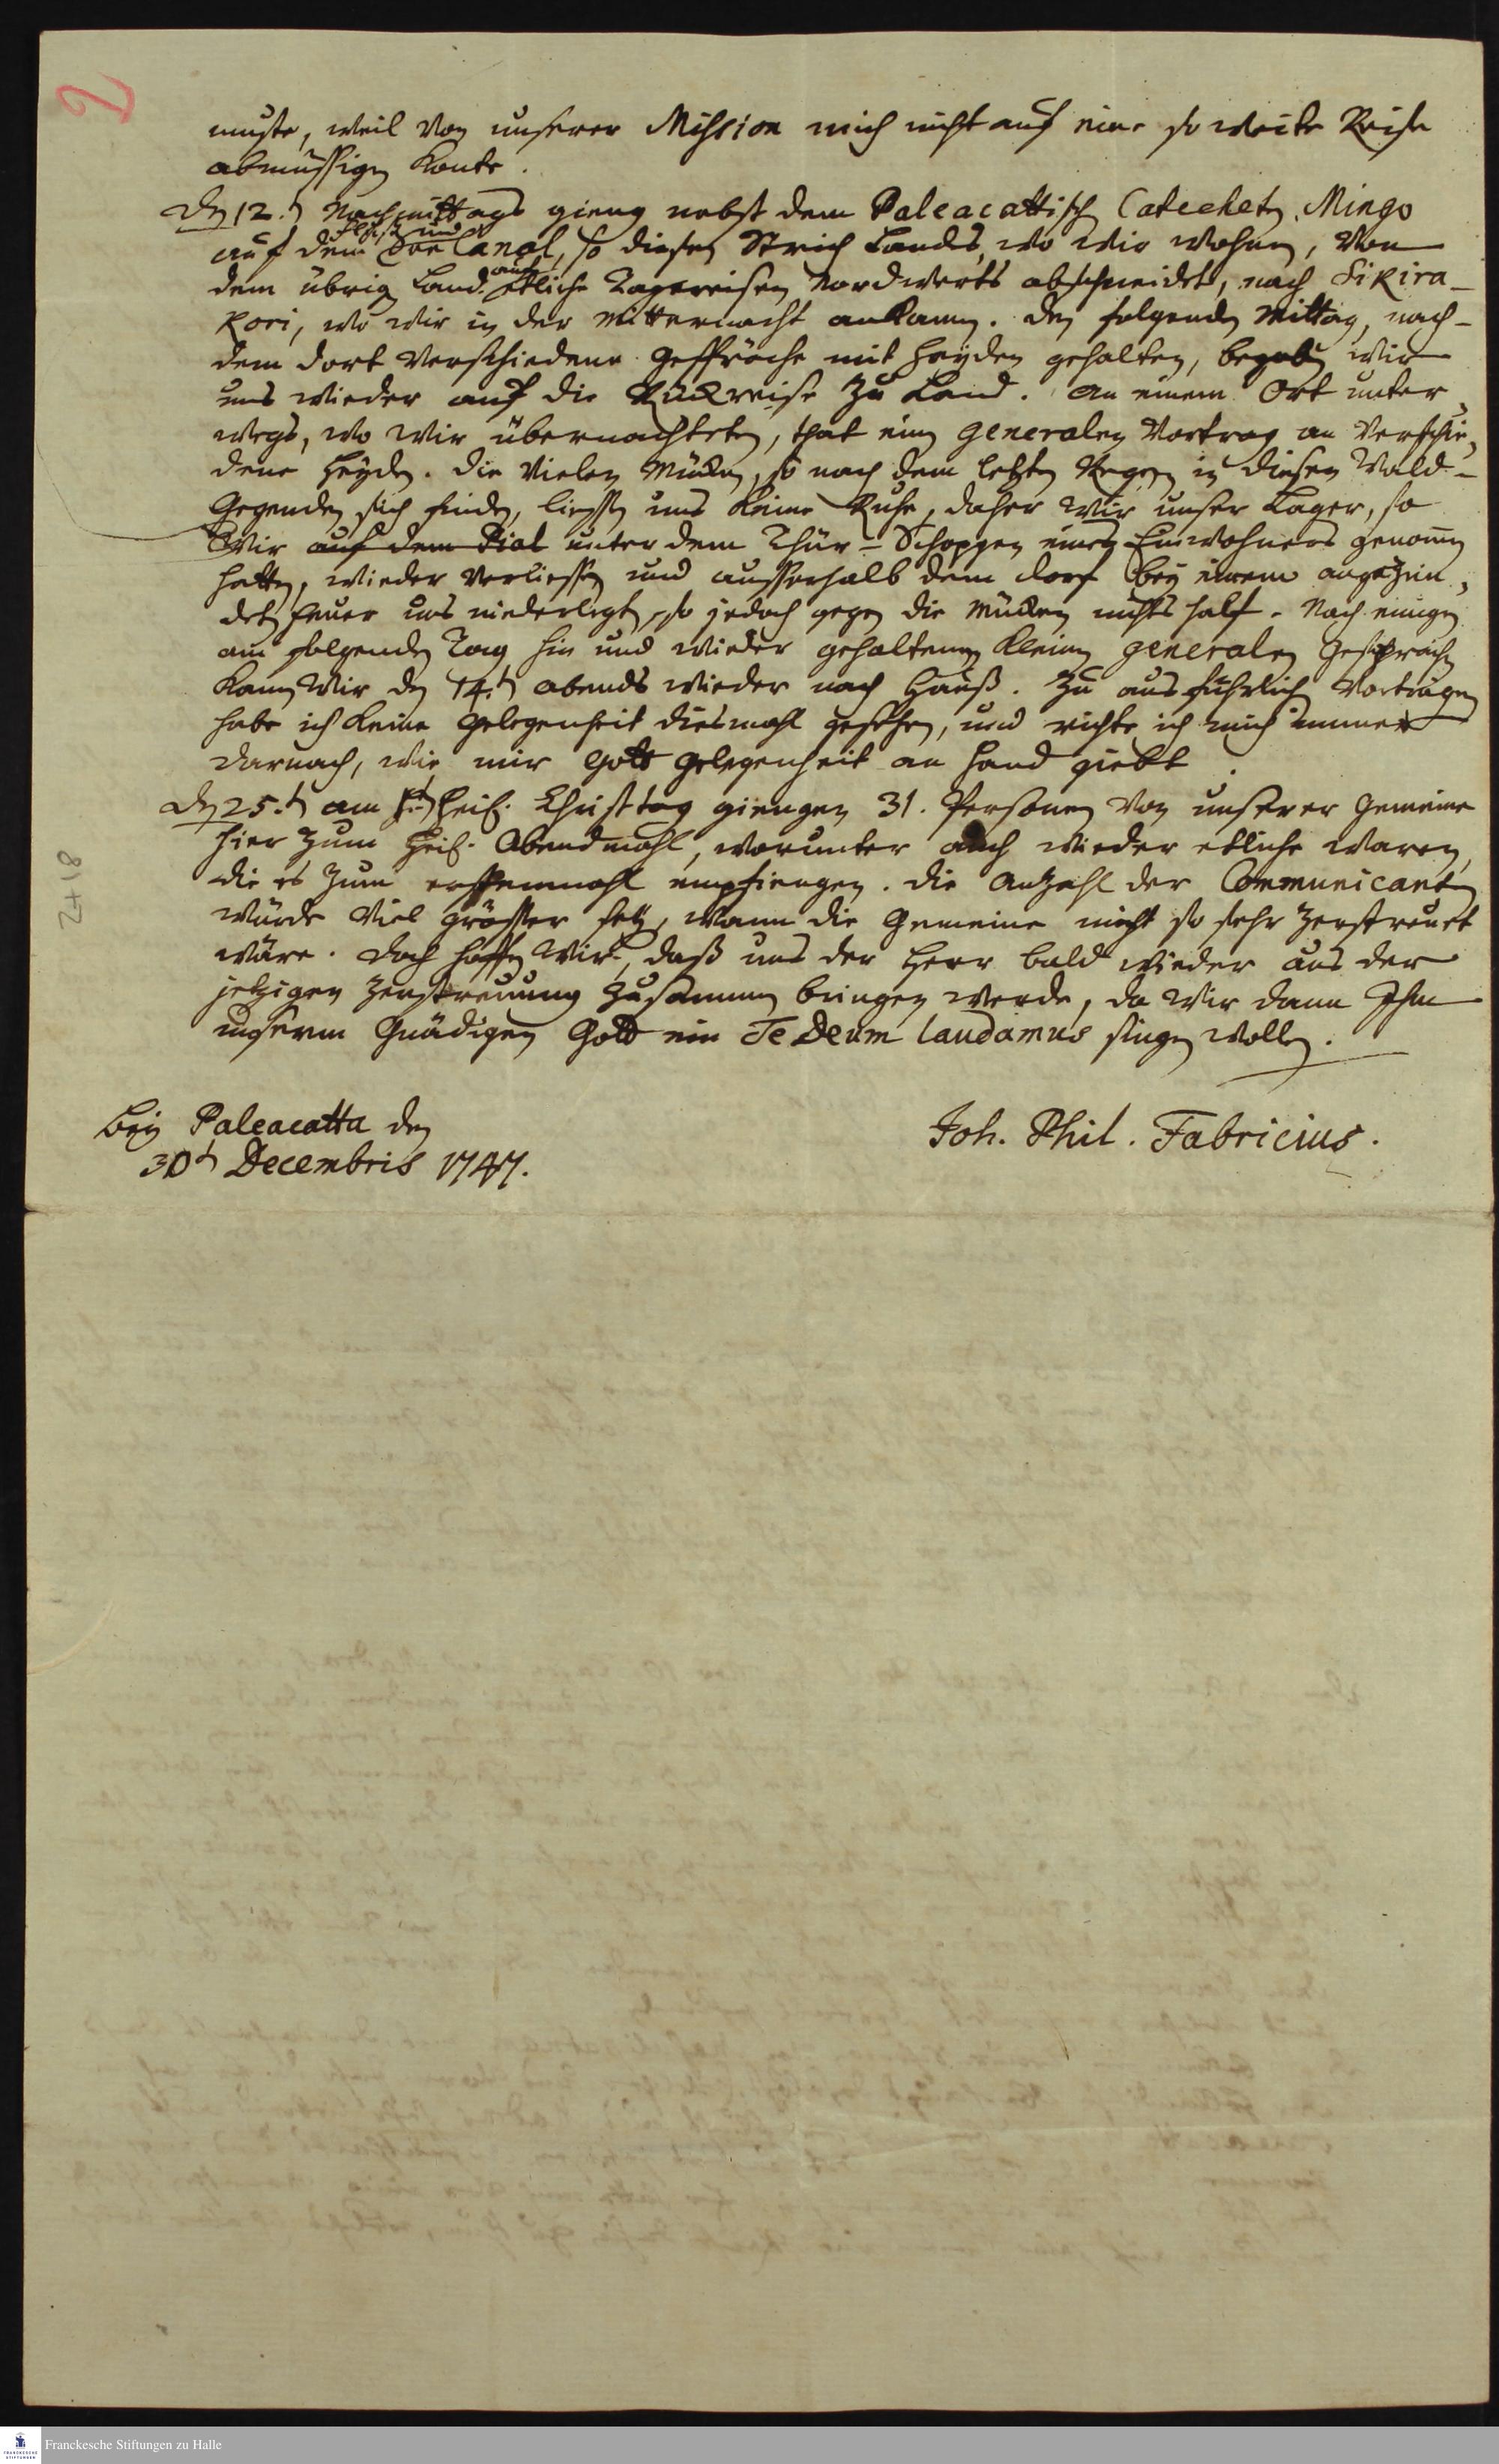 2
muste, weil von unserer Mission mich nicht auf eine so weite Reise
abmüssigen konte.
Den 12.ten Nachmittags gieng nebst dem Paleacattischen Catecheten Mingo
Fluß und
auf dem Canal, so diesen Strich Lands, wo wir wohnen, von
auf
dem übrigen Land etliche Tagereisen Nordwerts abschneidet, nach Sikira-
kori, wo wir in der Mitternacht ankamen. Den folgenden Mittag, nach-
dem dort verschiedene Gespräche mit Heyden gehalten, begaben wir
uns wieder auf die Rückreise zu Land. An einem Ort unter-
wegs, wo wir übernachteten, that einen generalen Vortrag an verschie-
dene Heyden. Die vielen Mücken, so nach dem letzten Regen in diesen Wald-
Gegenden sich finden, liessen uns keine Ruhe, daher wir unser Lager, so
wir auf dem Pial unter dem Thür-Schoppen eines Einwohners genommen
hatten, wieder verliessen und ausserhalb dem Dorf bey einem angezün-
deten Feuer uns niederlegten, so jedoch gegen die Mücken nichts half. Nach einigen
am folgenden Tag hin und wieder gehaltenen kleinen generalen Gesprächen
kamen wir den 14.ten abends wieder nach Hauß. Zu ausführlichen Vorträgen
habe ich keine Gelegenheit diesmahl gesehen, und richte ich mich immer
darnach, wie mir Gott Gelegenheit an Hand giebt.
Den 25.ten am heil. Christtag giengen 31. Personen von unserer Gemeine
hier zum Heil. Abendmahl, worunter auch wieder etliche waren,
die es zum erstenmahl empfiengen. Die Anzahl der Communicanten
würde viel grösser seyn, wann die Gemeine nicht so sehr zerstreuet
wäre. Doch hoffen wir, daß uns der Herr bald wieder aus der
jetzigen Zerstreuung zusammen bringen werde, da wir dann Ihm
unserm Gnädigen Gott ein Te Deum laudamus singen wollen.
Bey Paleacatta den
30ten Decembris 1747.
Joh. Phil. Fabricius.
Franckesche Stiftungen zu Halle